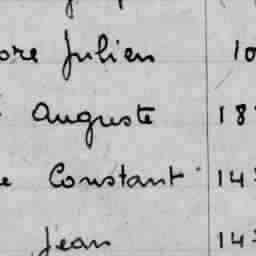 ore Julien 10
Auguste 18
e Constant 14
Jean 14